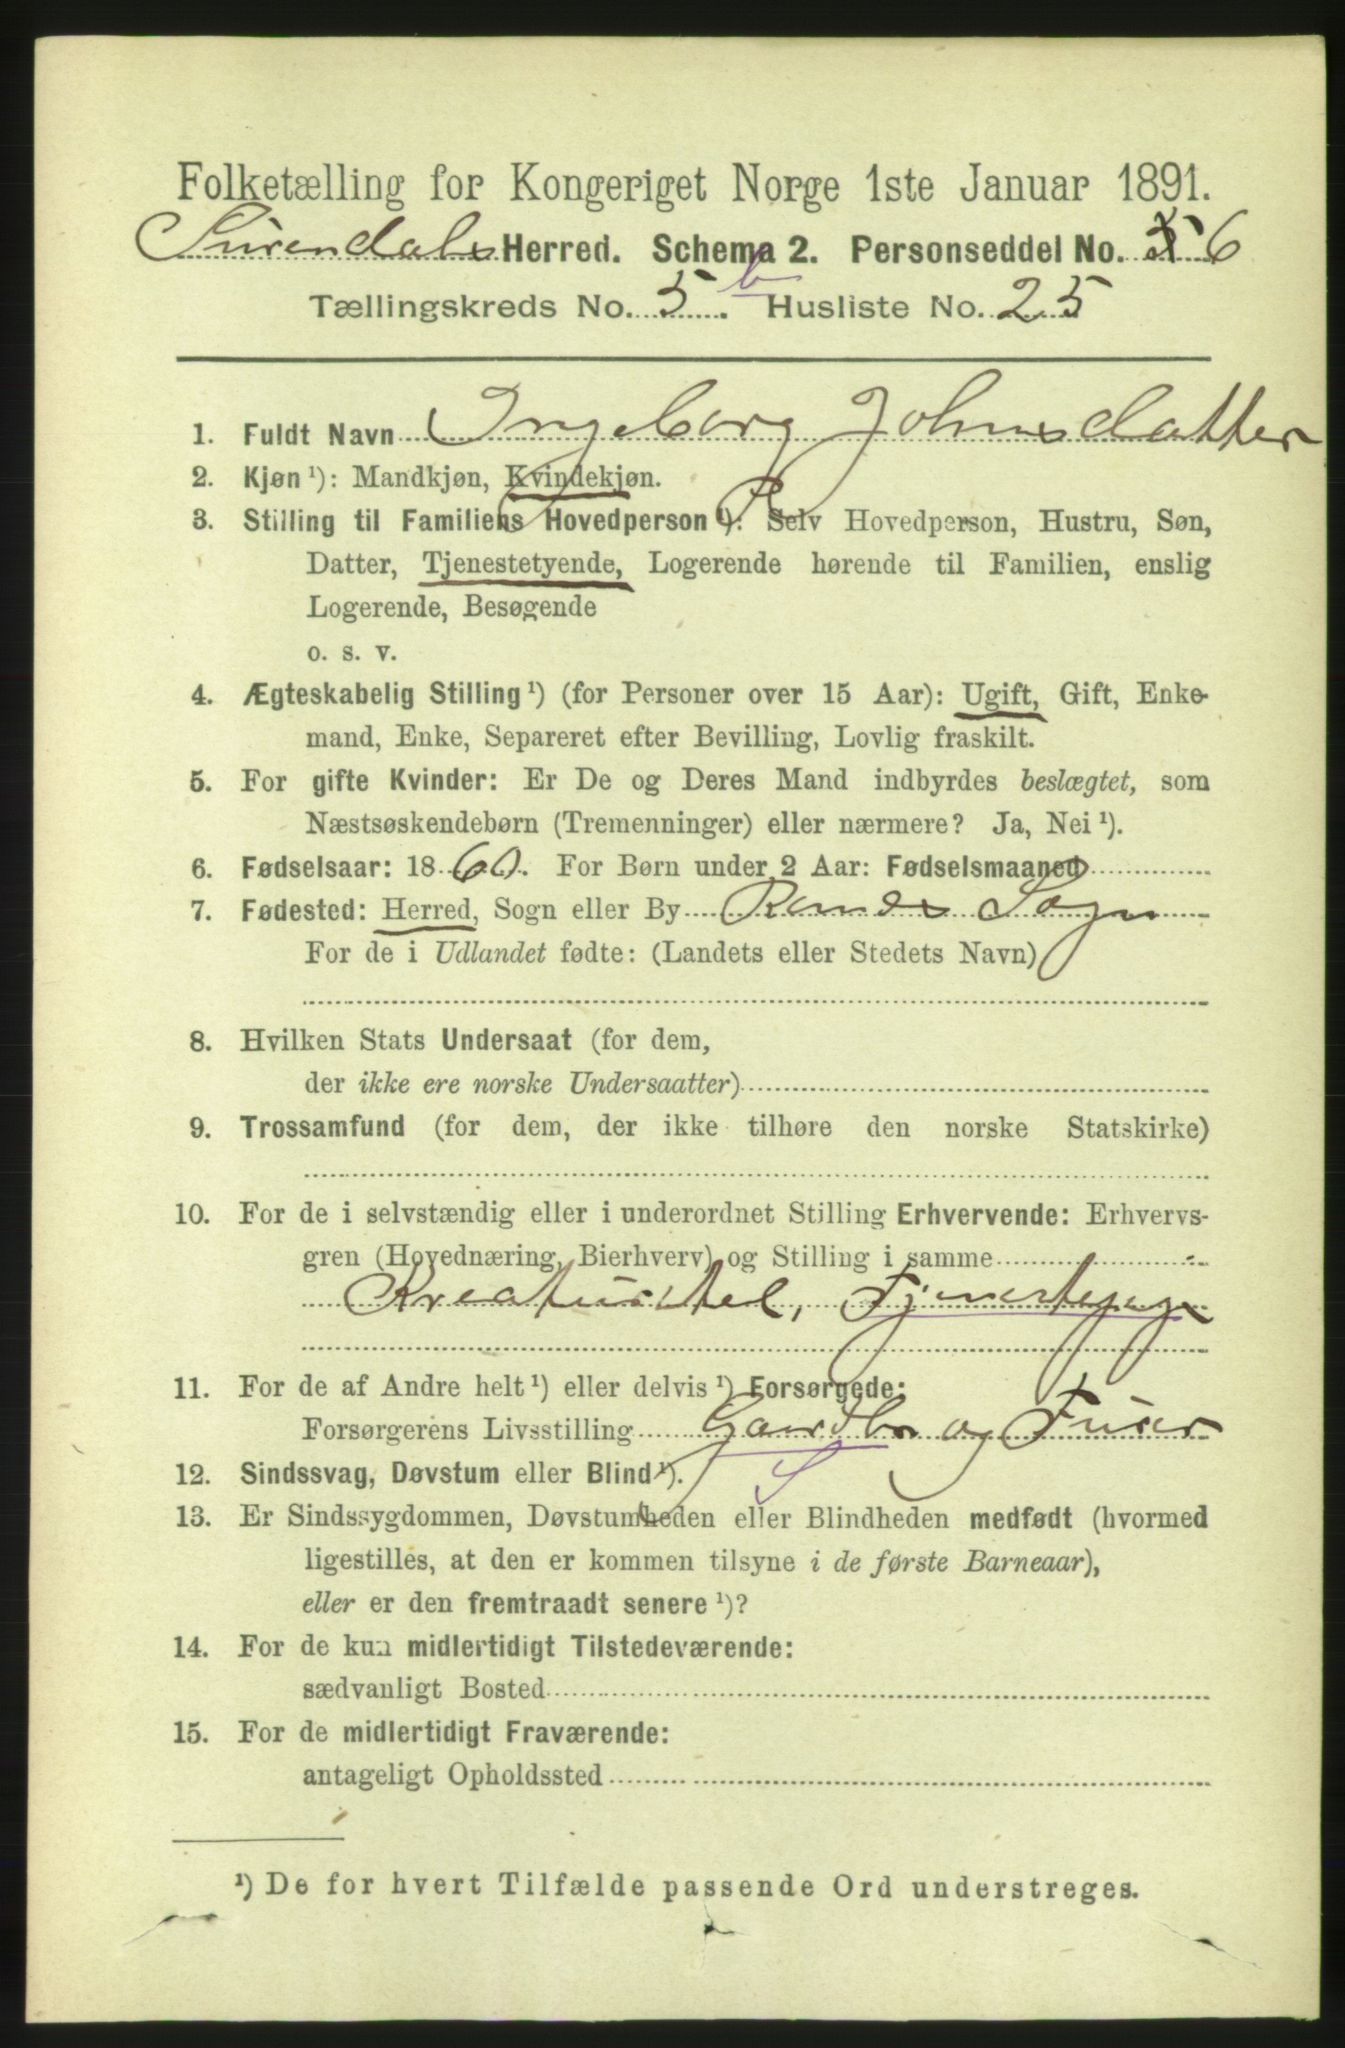 Folketælling for Kongeriget Norge 1ste Januar 1891.
Surendals Herred. Schema 2. Personseddel No. 6
Tællingskreds No. 5 b Husliste No. 25
1. Fuldt Navn Ingeborg Johnsdatter
2. Kjøn ¹): Mandkjøn, Kvindekjøn.
3. Stilling til Familiens Hovedperson ¹): Selv Hovedperson, Hustru, Søn,
Datter, Tjenestetyende, Logerende hørende til Familien, enslig
Logerende, Besøgende
o. s. v.
4. Ægteskabelig Stilling ¹) (for Personer over 15 Aar): Ugift, Gift, Enke-
mand, Enke, Separeret efter Bevilling, Lovlig fraskilt.
5. For gifte Kvinder: Er De og Deres Mand indbyrdes beslægtet, som
Næstsøskendebørn (Tremenninger) eller nærmere? Ja, Nei ¹).
6. Fødselsaar: 1860. For Børn under 2 Aar: Fødselsmaaned
7. Fødested: Herred, Sogn eller By Ranes Sogn
For de i Udlandet fødte: (Landets eller Stedets Navn)
8. Hvilken Stats Undersaat (for dem,
der ikke ere norske Undersaatter)
9. Trossamfund (for dem, der ikke tilhøre den norske Statskirke)
10. For de i selvstændig eller i underordnet Stilling Erhvervende: Erhvervs-
gren (Hovednæring, Bierhverv) og Stilling i samme
Kreaturstel, Tjenestepige
11. For de af Andre helt ¹) eller delvis ¹) Forsørgede:
Forsørgerens Livsstilling Gaardbr og
12. Sindssvag, Døvstum eller Blind ¹). S
13. Er Sindssygdommen, Døvstumheden eller Blindheden medfødt (hvormed
ligestilles, at den er kommen tilsyne i de første Barneaar),
eller er den fremtraadt senere ¹)?
14. For de kun midlertidigt Tilstedeværende:
sædvanligt Bosted
15. For de midlertidigt Fraværende:
antageligt Opholdssted
¹) De for hvert Tilfælde passende Ord understreges.